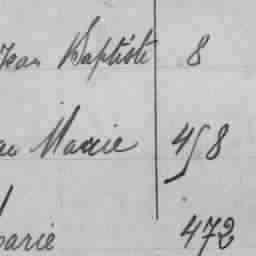 Jean Baptiste 8
Marie 458
arie 472